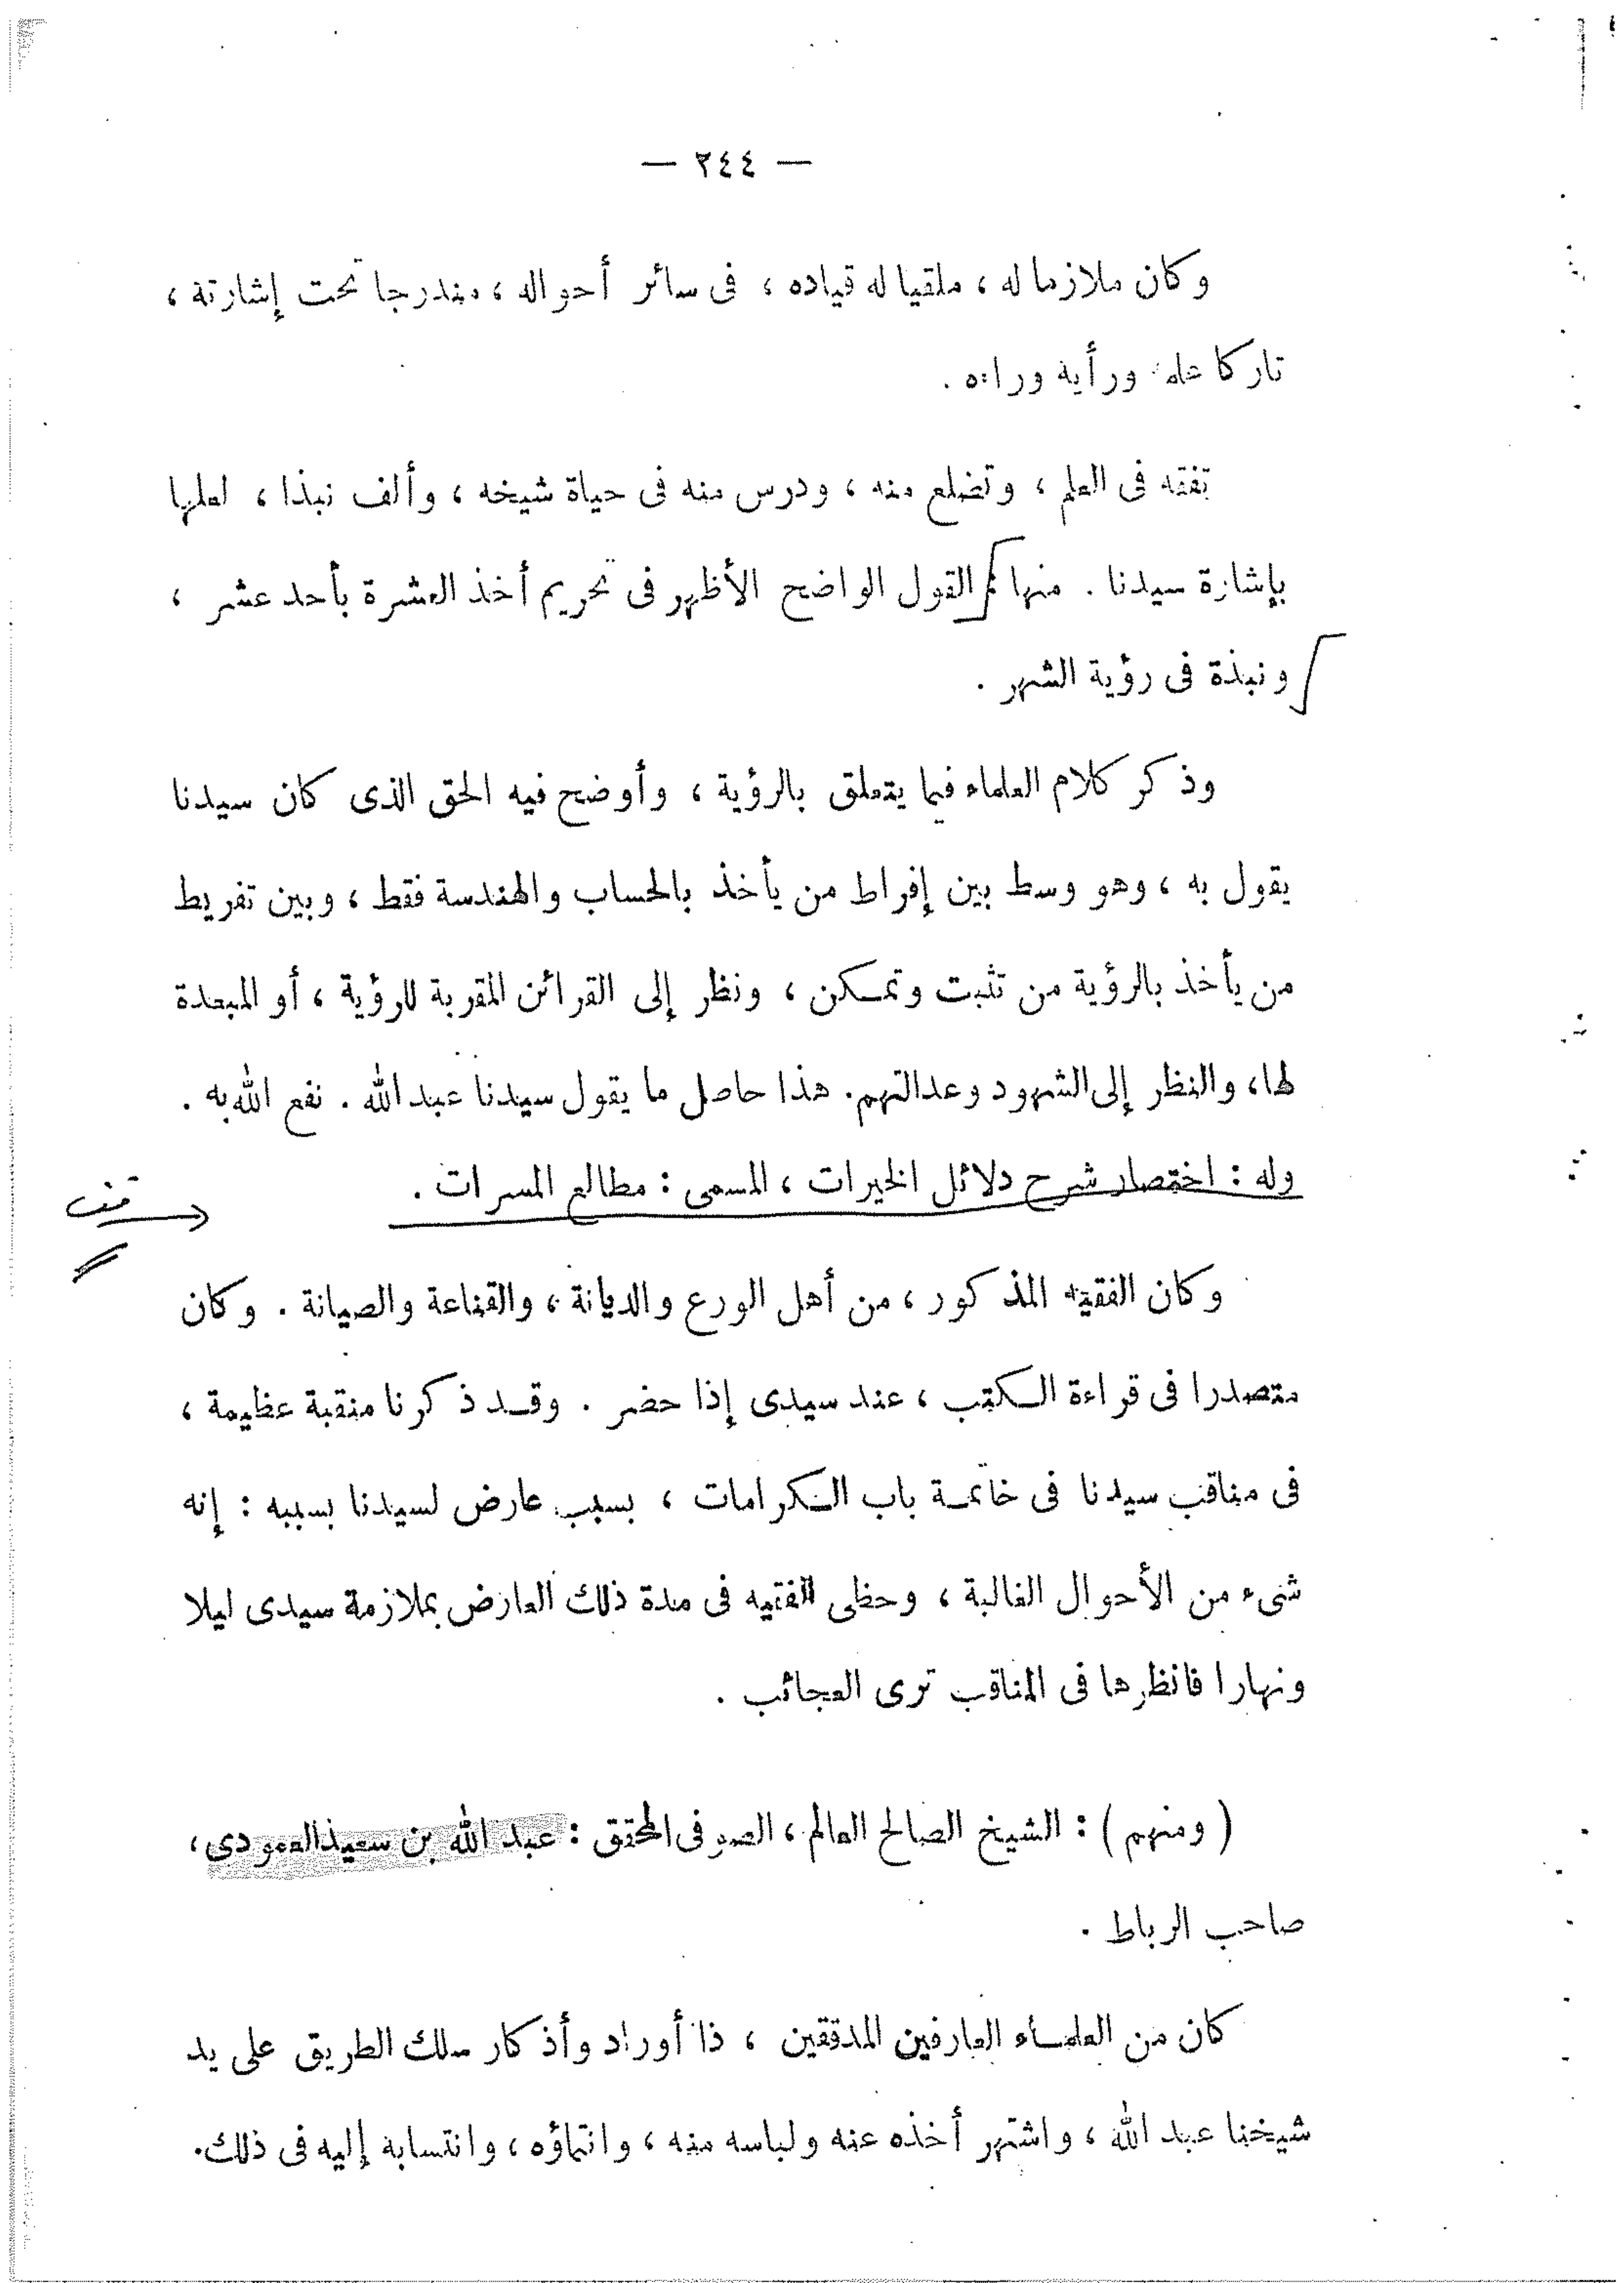 — ٢٤٤ —
وكان ملازما له ، ملقيا له قياده ، فى سائر أحواله ، مندرجا تحت إشارته ،
تاركا علمه ورأيه وراءه .
تفقه فى العلم ، وتضلع منه ، ودرس منه فى حياة شيخه ، وألف نبذا ، لعلها
بإشارة سيدنا . منها : القول الواضح الأظهر فى تحريم أخذ العشرة بأحد عشر ،
ونبذة فى رؤية الشهر .
وذكر كلام العلماء فيما يتعلق بالرؤية ، وأوضح فيه الحق الذى كان سيدنا
يقول به ، وهو وسط بين إفراط من يأخذ بالحساب والهندسة فقط ، وبين تفريط
من يأخذ بالرؤية من تثبت وتمكن ، ونظر إلى القرائن المقربة للرؤية ، أو المبعدة
لها، والنظر إلى الشهود وعدالتهم. هذا حاصل ما يقول سيدنا عبد الله . نفع الله به .
وله : اختصار شرح دلائل الخيرات ، المسمى : مطالع المسرات .
قف
وكان الفقيه المذكور ، من أهل الورع والديانة ، والقناعة والصيانة . وكان
متصدرا فى قراءة الكتب ، عند سيدى إذا حضر . وقد ذكرنا منقبة عظيمة ،
فى مناقب سيدنا فى خاتمة باب الكرامات ، بسبب عارض لسيدنا بسببه : إنه
شىء من الأحوال الغالبة ، وحظى الفقيه فى مدة ذلك العارض بملازمة سيدى ليلا
ونهارا فانظرها فى المناقب ترى العجائب .
( ومنهم ) : الشيخ الصالح العالم ، الصوفى المحقق : عبد الله بن سعيد العمودى ،
صاحب الرباط .
كان من العلماء العارفين المدققين ، ذا أوراد وأذكار سلك الطريق على يد
شيخنا عبد الله ، واشتهر أخذه عنه ولباسه منه ، وانتماؤه ، وانتسابه إليه فى ذلك.